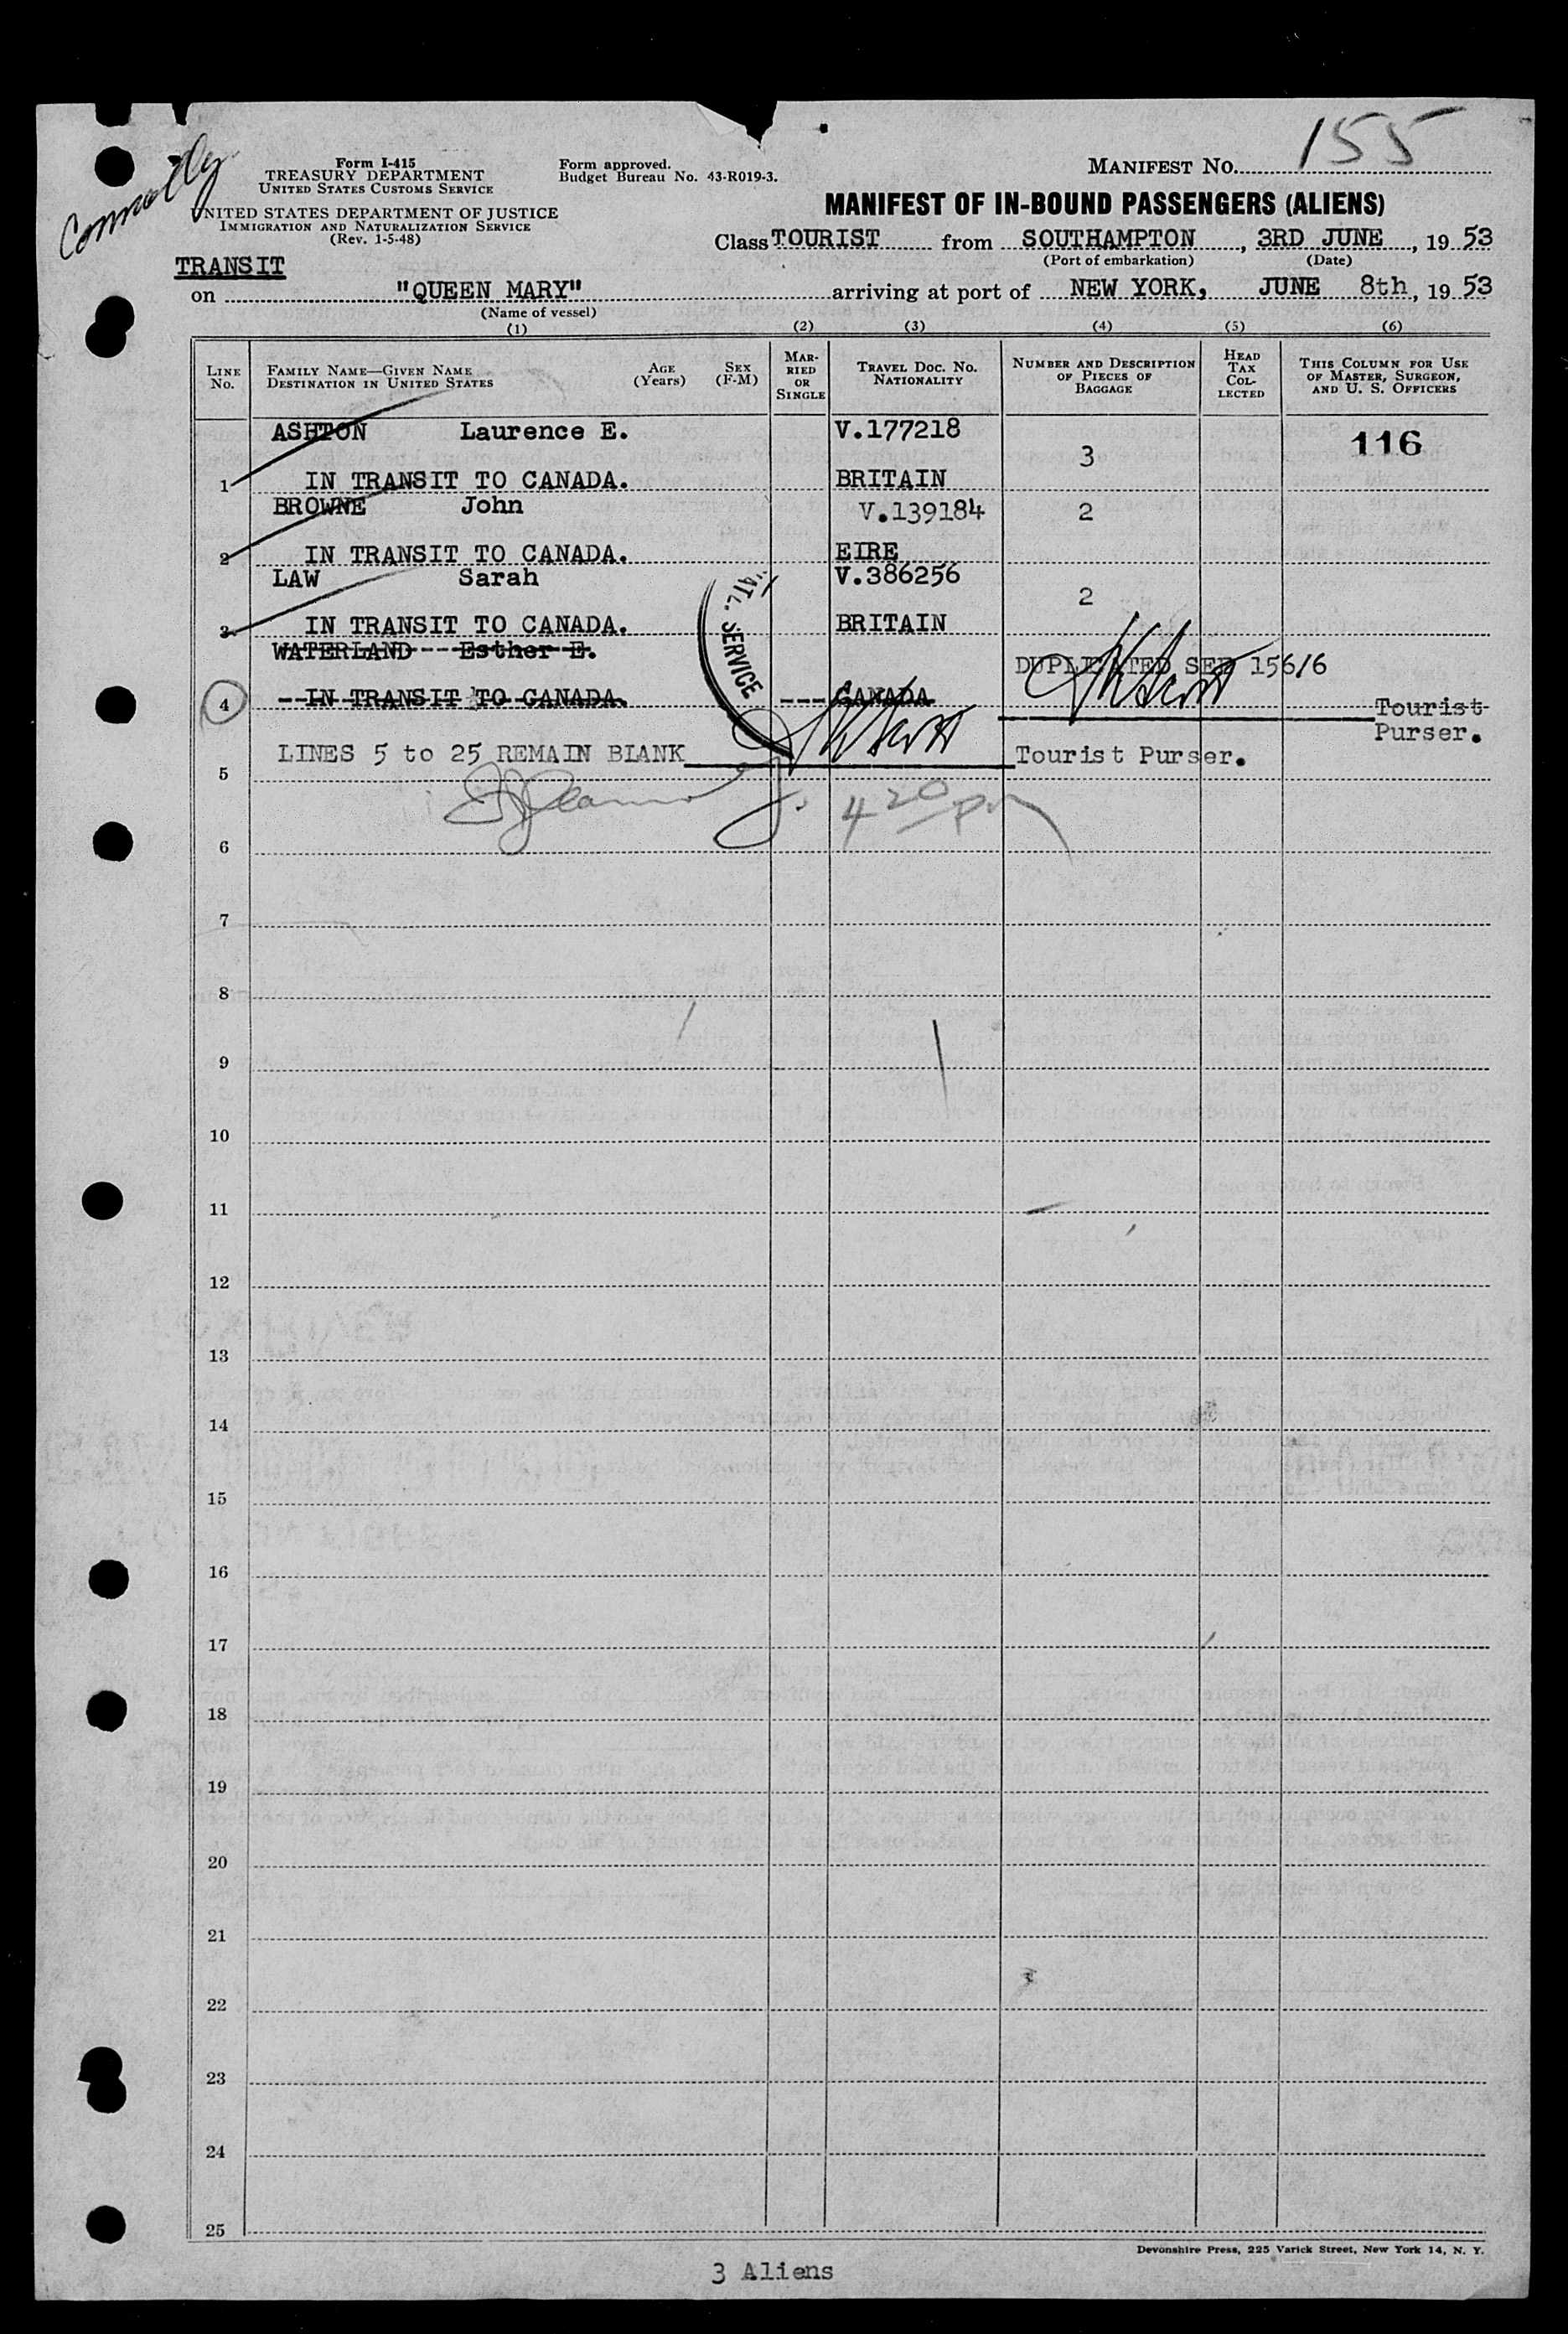 Connolly
155
Form I-415
TREASURY DEPARTMENT
UNITED STATES CUSTOMS SERVICE
UNITED STATES DEPARTMENT OF JUSTICE
IMMIGRATION AND NATURALIZATION SERVICE
(Rev. 1-5-48)
Form approved.
Budget Bureau No. 43-R019-3.
MANIFEST NO.
MANIFEST OF IN-BOUND PASSENGERS (ALIENS)
Class TOURIST from SOUTHAMPTON, 3RD JUNE, 19 53
(Port of embarkation) (Date)
TRANSIT
on "QUEEN MARY" arriving at port of NEW YORK, JUNE 8th, 19 53
(Name of vessel)
(1) (2) (3) (4) (5) (6)
LINE NO.
FAMILY NAME—GIVEN NAME
DESTINATION IN UNITED STATES
AGE (Years)
SEX (F-M)
MARRIED OR SINGLE
TRAVEL DOC. NO.
NATIONALITY
NUMBER AND DESCRIPTION OF PIECES OF BAGGAGE
HEAD TAX COLLECTED
THIS COLUMN FOR USE OF MASTER, SURGEON, AND U. S. OFFICERS
ASHTON Laurence E. V.177218 3 116
1 IN TRANSIT TO CANADA. BRITAIN
BROWNE John V.139184 2
2 IN TRANSIT TO CANADA. EIRE
LAW Sarah V.386256 2
3 IN TRANSIT TO CANADA. BRITAIN
WATERLAND Esther E. DUPLICATED SEE 156/6
4 IN TRANSIT TO CANADA. CANADA Tourist
Purser.
SERVICE
LINES 5 to 25 REMAIN BLANK Tourist Purser.
5
4 20 pm
6
7
8
9
10
11
12
13
14
15
16
17
18
19
20
21
22
23
24
25
Devonshire Press, 225 Varick Street, New York 14, N. Y.
3 Aliens